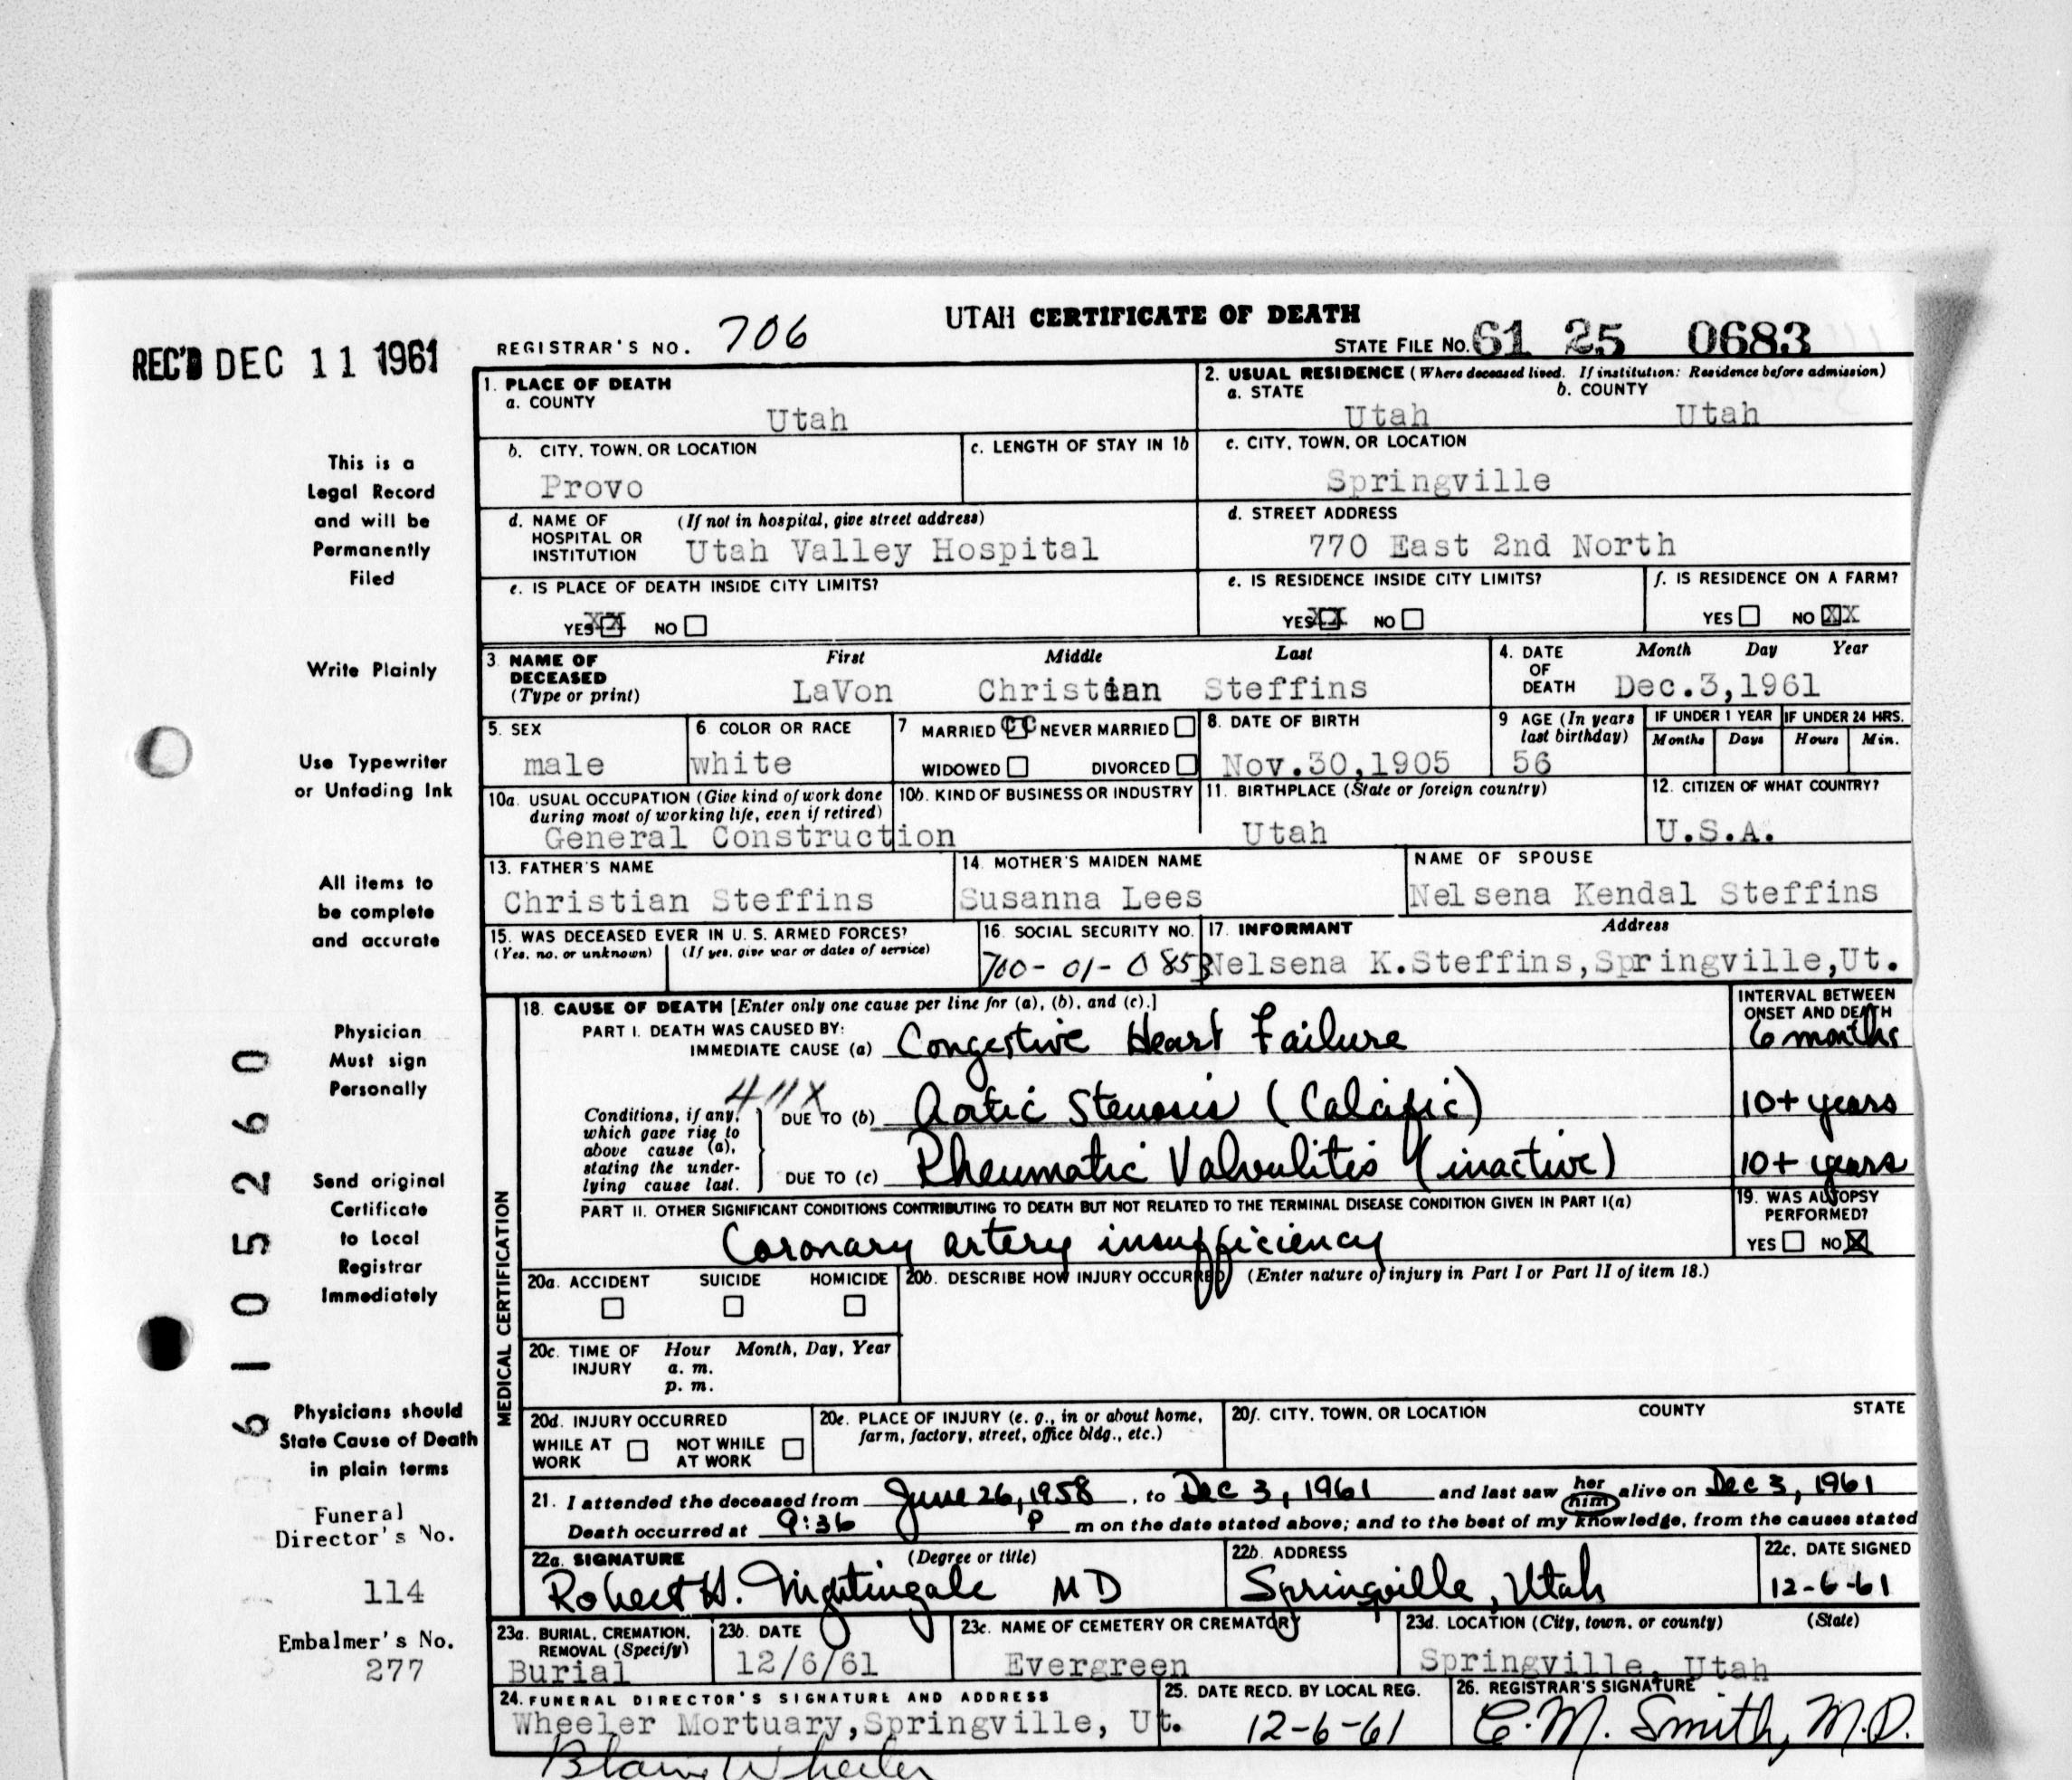 UTAH CERTIFICATE OF DEATH
REC'D DEC 11 1961
REGISTRAR'S NO. 706
STATE FILE NO. 61 25 0683
This is a
Legal Record
and will be
Permanently
Filed
Write Plainly
Use Typewriter
or Unfading Ink
All items to
be complete
and accurate
Physician
Must sign
Personally
Send original
Certificate
to Local
Registrar
Immediately
Physicians should
State Cause of Death
in plain terms
Funeral
Director's No.
114
Embalmer's No.
277
6105260
1. PLACE OF DEATH
a. COUNTY
Utah
2. USUAL RESIDENCE (Where deceased lived. If institution: Residence before admission)
a. STATE b. COUNTY
Utah Utah
b. CITY, TOWN, OR LOCATION
Provo
c. LENGTH OF STAY IN 1b
c. CITY, TOWN, OR LOCATION
Springville
d. NAME OF HOSPITAL OR INSTITUTION (If not in hospital, give street address)
Utah Valley Hospital
d. STREET ADDRESS
770 East 2nd North
e. IS PLACE OF DEATH INSIDE CITY LIMITS?
YES XX NO
e. IS RESIDENCE INSIDE CITY LIMITS?
YES XX NO
f. IS RESIDENCE ON A FARM?
YES NO XX
3. NAME OF
DECEASED
(Type or print)
First Middle Last
LaVon Christian Steffins
4. DATE
OF
DEATH
Month Day Year
Dec.3,1961
5. SEX
male
6. COLOR OR RACE
white
7 MARRIED NEVER MARRIED
WIDOWED DIVORCED
8. DATE OF BIRTH
Nov.30,1905
9 AGE (In years
last birthday)
56
IF UNDER 1 YEAR IF UNDER 24 HRS.
Months Days Hours Min.
10a. USUAL OCCUPATION (Give kind of work done
during most of working life, even if retired)
General Construction
10b. KIND OF BUSINESS OR INDUSTRY
11. BIRTHPLACE (State or foreign country)
Utah
12. CITIZEN OF WHAT COUNTRY?
U.S.A.
13. FATHER'S NAME
Christian Steffins
14. MOTHER'S MAIDEN NAME
Susanna Lees
NAME OF SPOUSE
Nelsena Kendal Steffins
15. WAS DECEASED EVER IN U. S. ARMED FORCES?
(Yes, no, or unknown) (If yes, give war or dates of service)
16. SOCIAL SECURITY NO.
700-01-0853
17. INFORMANT Address
Nelsena K.Steffins,Springville,Ut.
MEDICAL CERTIFICATION
18. CAUSE OF DEATH [Enter only one cause per line for (a), (b), and (c).]
INTERVAL BETWEEN
ONSET AND DEATH
PART I. DEATH WAS CAUSED BY:
IMMEDIATE CAUSE (a) Congestive Heart Failure 6 months
411X
Conditions, if any,
which gave rise to
above cause (a),
stating the under-
lying cause last.
DUE TO (b) Aortic Stenosis (Calcific) 10+ years
DUE TO (c) Rheumatic Valvulitis (inactive) 10+ years
PART II. OTHER SIGNIFICANT CONDITIONS CONTRIBUTING TO DEATH BUT NOT RELATED TO THE TERMINAL DISEASE CONDITION GIVEN IN PART I(a)
Coronary artery insufficiency
19. WAS AUTOPSY
PERFORMED?
YES NO X
20a. ACCIDENT SUICIDE HOMICIDE
20b. DESCRIBE HOW INJURY OCCURRED (Enter nature of injury in Part I or Part II of item 18.)
20c. TIME OF
INJURY
Hour Month, Day, Year
a. m.
p. m.
20d. INJURY OCCURRED
WHILE AT
WORK
NOT WHILE
AT WORK
20e. PLACE OF INJURY (e. g., in or about home,
farm, factory, street, office bldg., etc.)
20f. CITY, TOWN, OR LOCATION COUNTY STATE
21. I attended the deceased from June 26, 1958, to Dec 3, 1961 and last saw her him alive on Dec 3, 1961
Death occurred at 9:36 P m on the date stated above; and to the best of my knowledge, from the causes stated
22a. SIGNATURE (Degree or title)
Robert H. Nightingale MD
22b. ADDRESS
Springville, Utah
22c. DATE SIGNED
12-6-61
23a. BURIAL, CREMATION,
REMOVAL (Specify)
Burial
23b. DATE
12/6/61
23c. NAME OF CEMETERY OR CREMATORY
Evergreen
23d. LOCATION (City, town, or county) (State)
Springville, Utah
24. FUNERAL DIRECTOR'S SIGNATURE AND ADDRESS
Wheeler Mortuary,Springville, Ut.
Blaine Wheeler
25. DATE RECD. BY LOCAL REG.
12-6-61
26. REGISTRAR'S SIGNATURE
C.M. Smith, M.D.